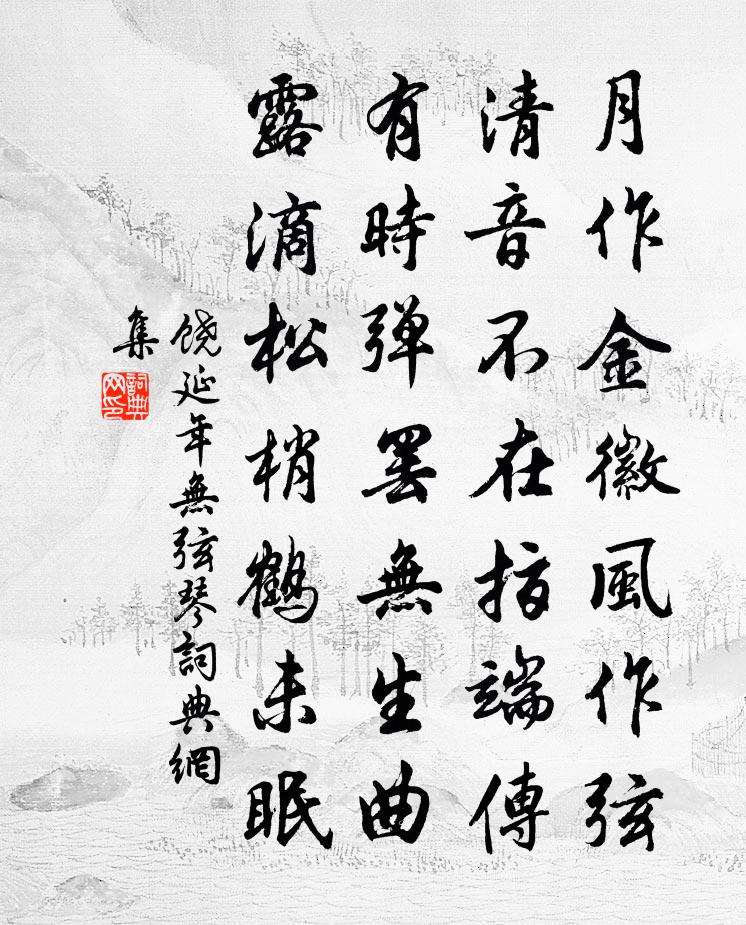 月作金徽風作弦
清音不在指端傳
有時弹罢無生曲
露滴松梢鶴未眠
饶延年無弦琴詞典網
集
詞典
网印